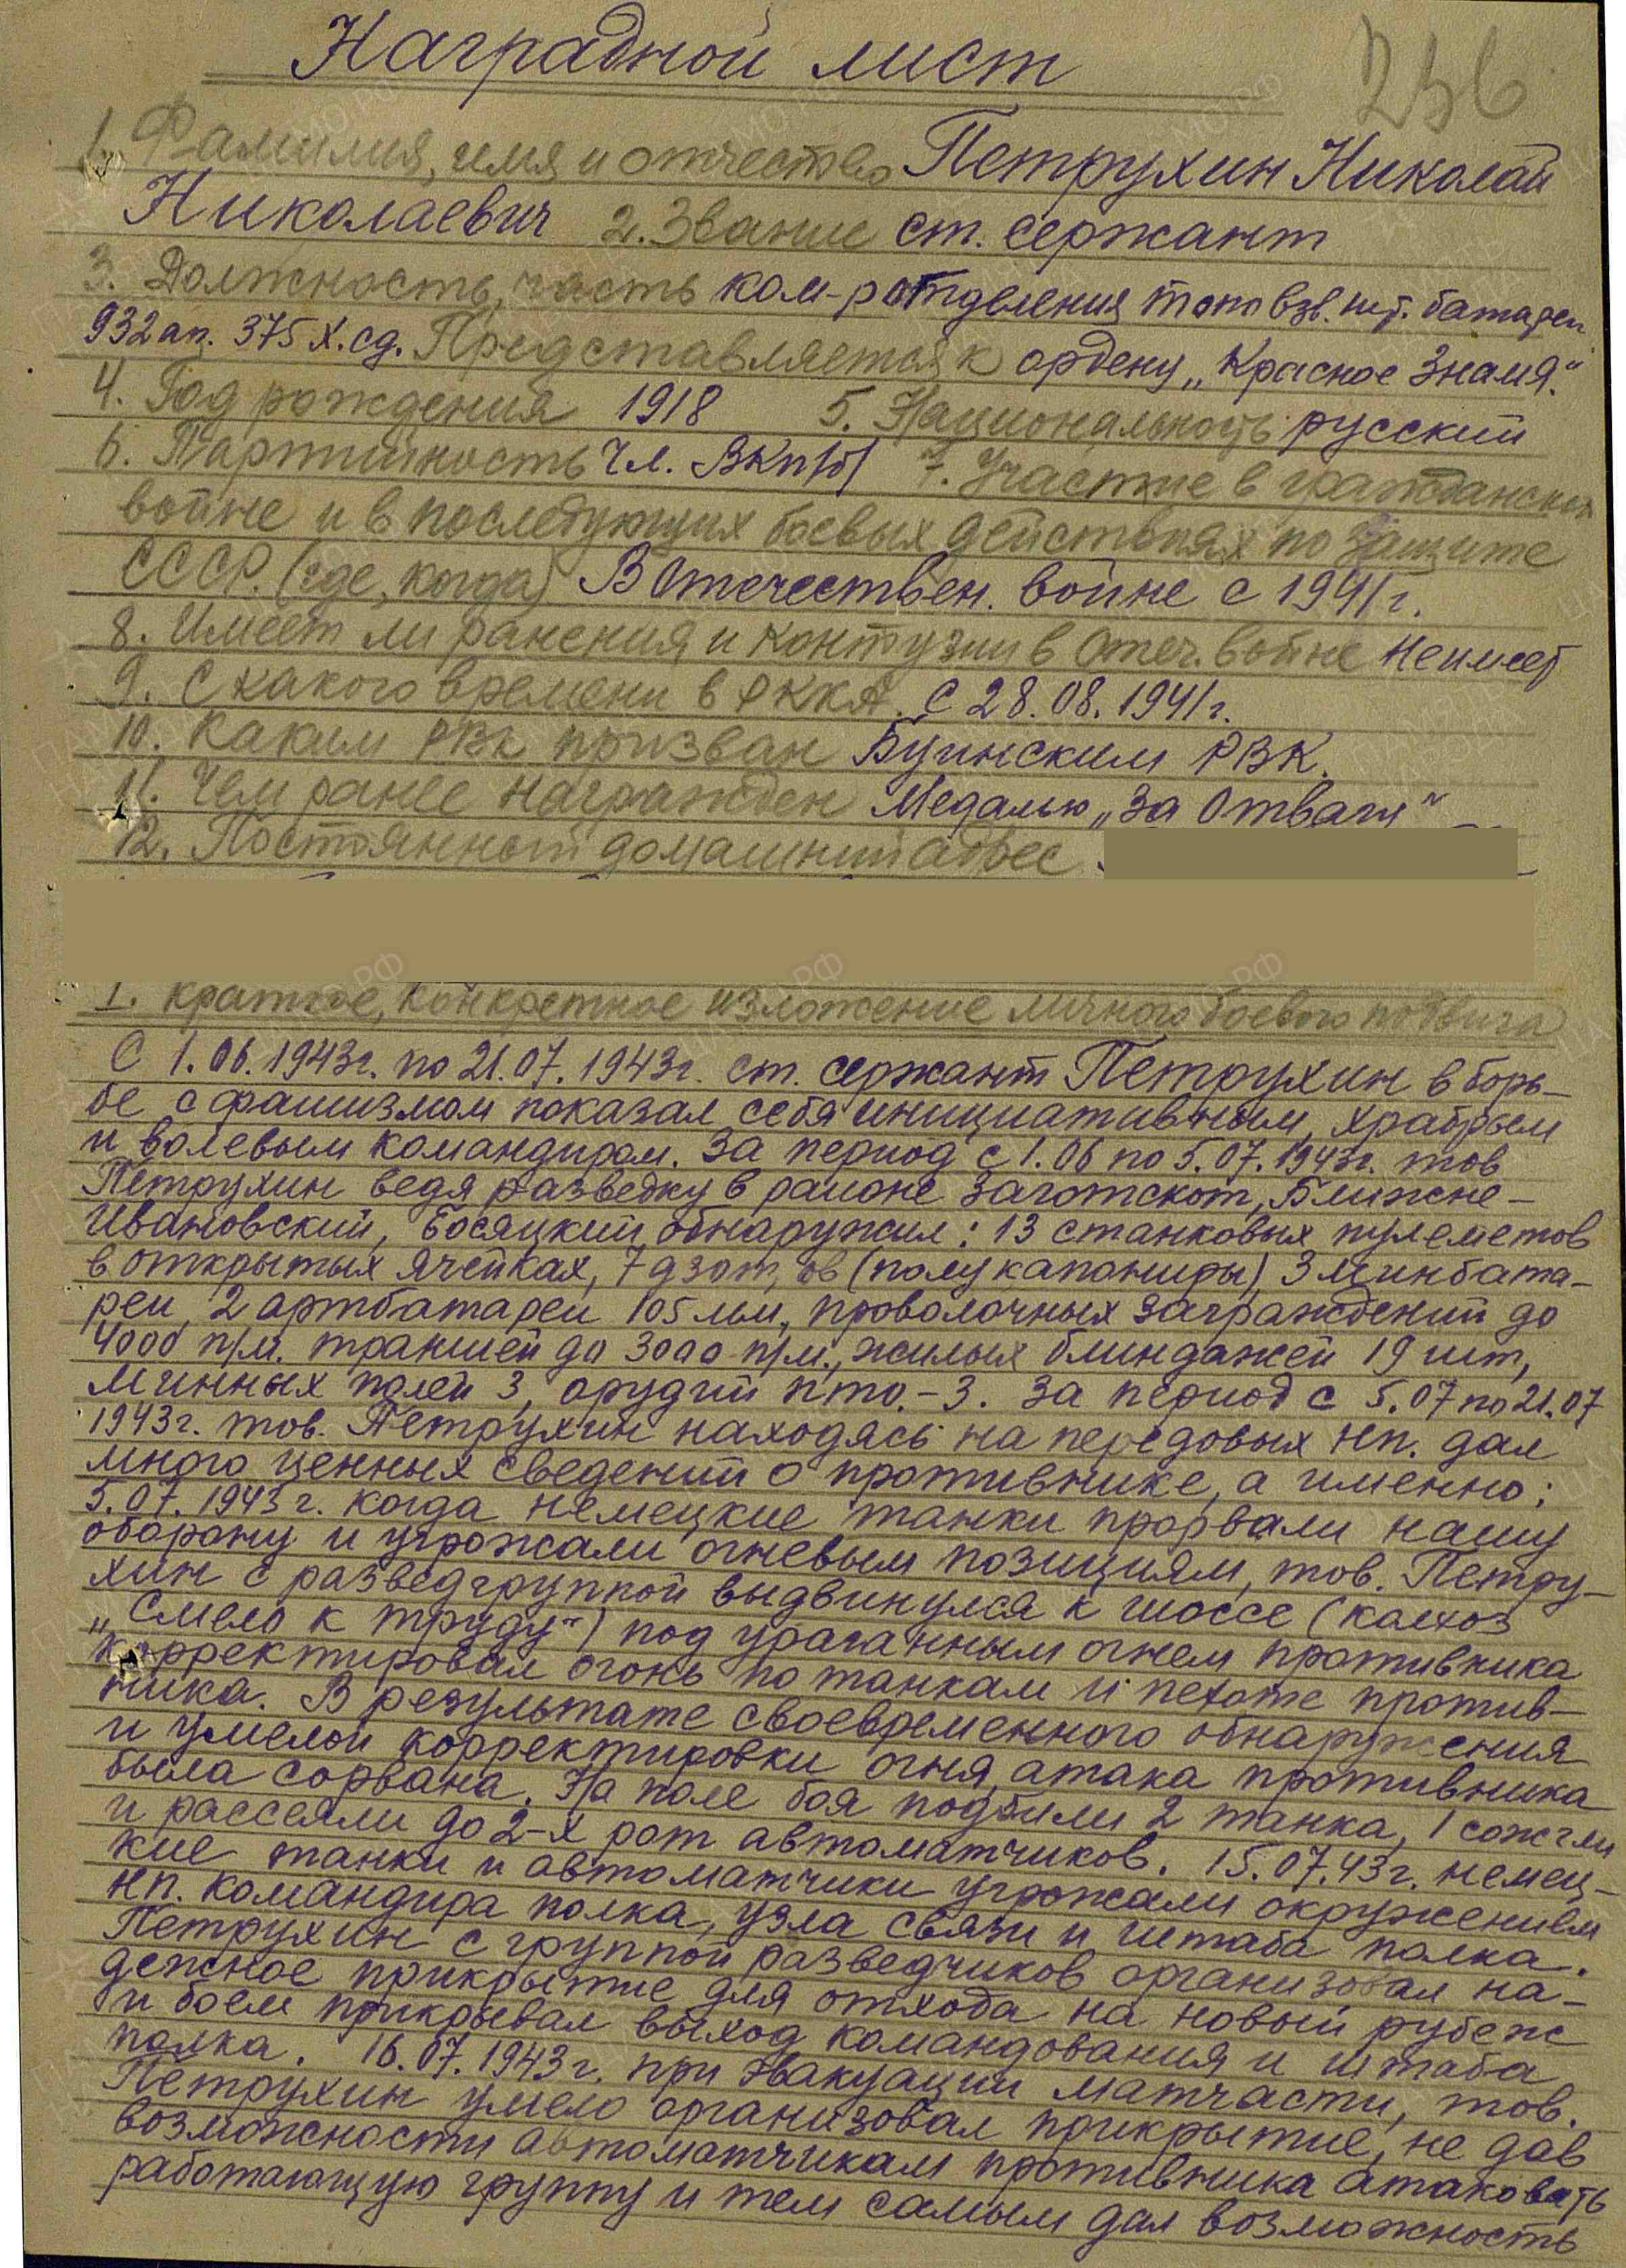 Наградной лист
236
1. Фамилия, имя и отчество Петрухин Николай
Николаевич 2. Звание ст. сержант
3. Должность, часть ком-р отделения топовзв. шт. батареи
932 ап. 375 х. сд. Представляется к ордену „Красное Знамя."
4. Год рождения 1918 5. Национальность русский
6. Партийность чл. ВКП/б/ 7. Участие в гражданской
войне и в последующих боевых действиях по защите
СССР. (где, когда) В Отечествен. войне с 1941 г.
8. Имеет ли ранения и контузии в Отеч. войне Не имеет
9. С какого времени в РККА. С 28.08.1941 г.
10. Каким РВК призван Буинским РВК.
11. Чем ранее награжден Медалью „За Отвагу"
12. Постоянный домашний адрес
I. Краткое, конкретное изложение личного боевого подвига
С 1.06.1943 г. по 21.07.1943 г. ст. сержант Петрухин в борь-
бе с фашизмом показал себя инициативным, храбрым
и волевым командиром. За период с 1.06 по 5.07.1943 г. тов
Петрухин ведя разведку в районе Заготскот, Ближне-
Ивановский, Босяцкий обнаружил: 13 станковых пулеметов
в открытых ячейках, 7 дзот,ов (полукапониры) 3 минбата-
реи, 2 артбатареи 105 мм., проволочных заграждений до
4000 п/м. траншей до 3000 п/м., жилых блиндажей 19 шт,
минных полей 3, орудий пто. - 3. За период с 5.07 по 21.07
1943 г. тов. Петрухин находясь на передовых нп. дал
много ценных сведений о противнике, а именно:
5.07.1943 г. когда немецкие танки прорвали нашу
оборону и угрожали огневым позициям, тов. Петру-
хин с разведгруппой выдвинулся к шоссе (колхоз
„Смело к труду") под ураганным огнем противника
корректировал огонь по танкам и пехоте против-
ника. В результате своевременного обнаружения
и умелой корректировки огня, атака противника
была сорвана. На поле боя подбили 2 танка, 1 сожгли
и рассеяли до 2-х рот автоматчиков. 15.07.43 г. немец-
кие танки и автоматчики угрожали окружением
нп. командира полка, узла связи и штаба полка.
Петрухин с группой разведчиков организовал на-
дежное прикрытие для отхода на новый рубеж
и боем прикрывал выход командования и штаба
полка. 16.07.1943 г. при эвакуации матчасти, тов.
Петрухин умело организовал прикрытие, не дав
возможности автоматчикам противника атаковать
работающую группу и тем самым дал возможность